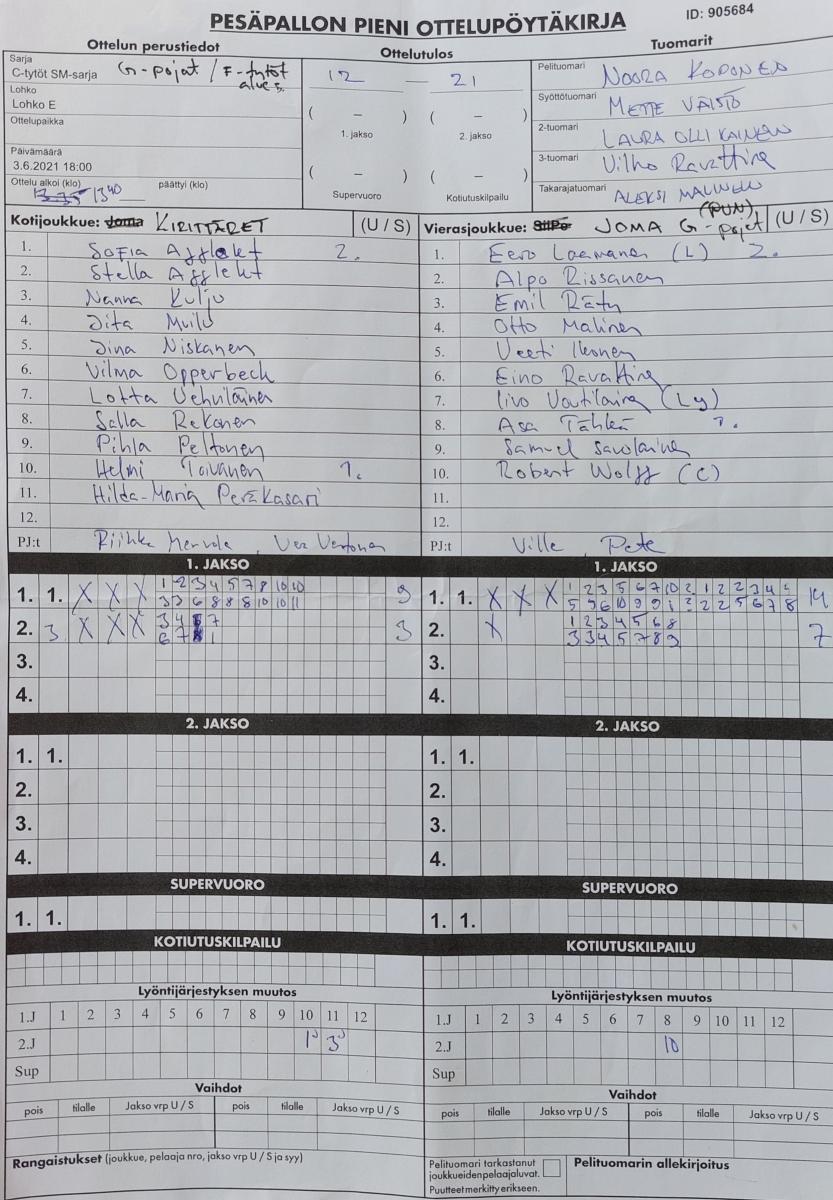 PESÄPALLON PIENI OTTELUPÖYTÄKIRJA
ID: 905684
Ottelun perustiedot
Ottelutulos
Tuomarit
Sarja
C-tytöt SM-sarja G-pojat / F-tytöt
Lohko
Lohko E
Ottelupaikka
Päivämäärä
3.6.2021 18:00
Ottelu alkoi (klo) 13.40 päättyi (klo)
12 — 21
( – ) ( – )
1. jakso 2. jakso
( – ) ( – )
Supervuoro Kotiutuskilpailu
Pelituomari NOORA KOPONEN
Syöttötuomari METTE VÄISTÖ
2-tuomari LAURA OLLIKAINEN
3-tuomari Vilho Ravattina
Takarajatuomari ALEKSI
Kotijoukkue: Joma KIRITTÄRET (U / S)
1. Sofia 2.
2. Stella
3. Nanna Kulju
4.
5. Niskanen
6. Vilma Opperbeck
7. Lotta Vehviläinen
8. Salla Rekonen
9. Pihla Peltonen
10. Helmi Toivanen 1.
11. Hilda-Maria Peräkasari
12.
PJ:t Riikka
Vierasjoukkue: SiiPe JOMA G-pojat (PUN) (U / S)
1. Eero (L) 2.
2. Alpo Rissanen
3. Emil Räty
4. Otto Malinen
5. Veeti Ikonen
6. Eino Ravattina
7. Iivo Voutilainen (Ly)
8. Asa Tähkä 1.
9. Samuel Savolainen
10. Robert Wolff (C)
11.
12.
PJ:t Ville, Pete
1. JAKSO
1. 1. X X X 1 2 3 4 5 7 8 10 10 9
3 3 6 8 8 8 10 10 11
2. 3 X X X 3 4 7 3
6 7 1
3.
4.
2. JAKSO
1. 1.
2.
3.
4.
SUPERVUORO
1. 1.
KOTIUTUSKILPAILU
Lyöntijärjestyksen muutos
1.J 1 2 3 4 5 6 7 8 9 10 11 12
2.J 1 3
Sup
Vaihdot
pois tilalle Jakso vrp U / S pois tilalle Jakso vrp U / S
Rangaistukset (joukkue, pelaaja nro, jakso vrp U / S ja syy)
1. JAKSO
1. 1. X X X 1 2 3 5 6 7 10 2 1 2 2 3 4 5 14
5 9 6 10 9 9 1 2 2 2 5 6 7 8
2. X 1 2 3 4 5 6 8 7
3 3 4 5 7 8 9
3.
4.
2. JAKSO
1. 1.
2.
3.
4.
SUPERVUORO
1. 1.
KOTIUTUSKILPAILU
Lyöntijärjestyksen muutos
1.J 1 2 3 4 5 6 7 8 9 10 11 12
2.J 10
Sup
Vaihdot
pois tilalle Jakso vrp U / S pois tilalle Jakso vrp U / S
Pelituomari tarkastanut
joukkueiden pelaajaluvat.
Puutteet merkitty erikseen.
Pelituomarin allekirjoitus